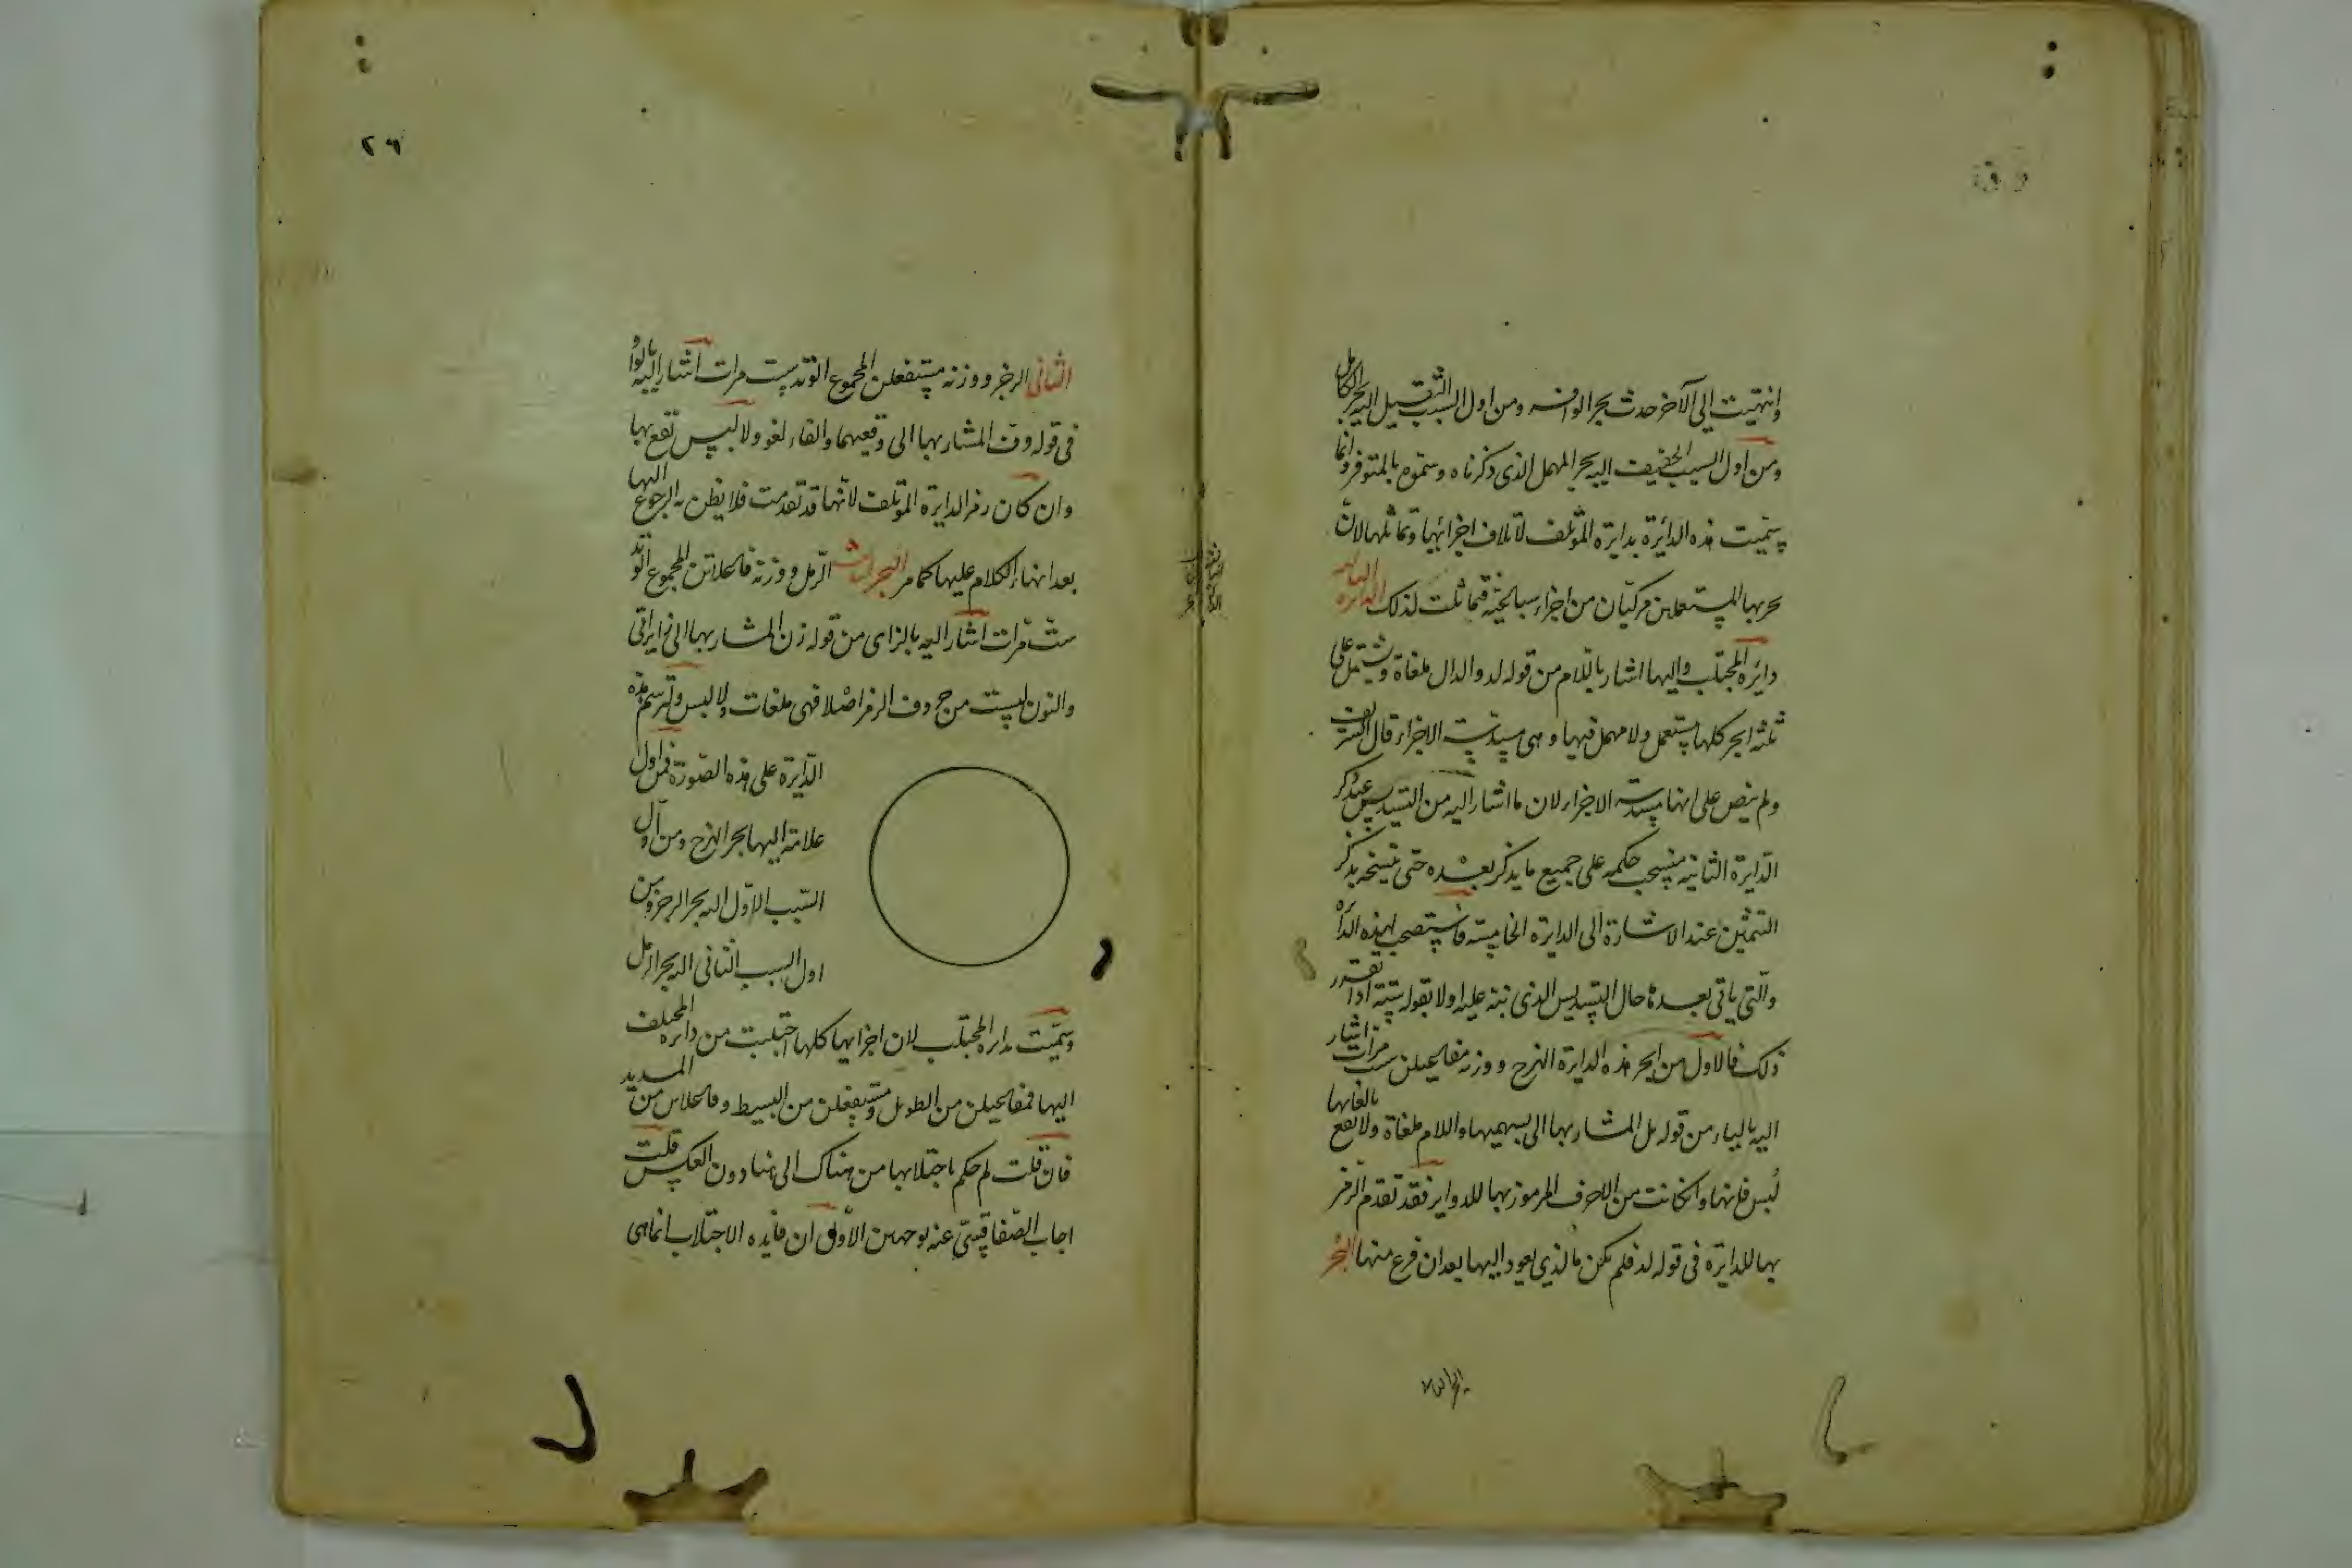 وانتهيت الى الآخر حدث بحر الوافر ومن اول السبب الثقيل اليه بحر الكامل
ومن اول السبب الخفيف اليه بحر المهمل الذي ذكرناه وسموه بالمتوفر وانما
سميت هذه الدائرة بدايرة المؤتلف لائتلاف اجزائها وتماثلها لان
بحريها المستعملين مركبان من اجزاء سباعية فتماثلت لذلك الدائرة الثالثه
دايرة المجتلب واليها اشار باللام من قوله لد والدال ملغاة وتشتمل على
ثلثه ابحر كلها مستعمل ولا مهمل فيها وهى مسدسة الاجزاء قال الشريف
ولم ينص على انها مسدسة الاجزاء لان ما اشار اليه من التسديس عند ذكر
الدايرة الثانيه منسحب حكمه على جميع ما يذكر بعده حتى ينسخه بذكر
التثمين عند الاشارة الى الدايرة الخامسة فاستصحب لهذه الدائرة
والتي ياتي بعدها حال التسديس الذي نبه عليه اولا بقوله ستة اذا تقرر
ذلك فالاول من ابحر هذه الدايرة الهزج ووزنه مفاعيلن ست مرات اشار
اليه بالياء من قوله بل المشار بها الى بسهميها واللام ملغاة ولا يقع بالغائها
لبس فانها وان كانت من الاحرف المرموز بها للدواير فقد تقدم الرمز
بها للدايرة في قوله لد فلم يكن بالذي يعود اليها بعد ان فرغ منها البحر
البحر الثاني
٢٦
الثاني الرجز ووزنه مستفعلن المجموع الوتد ست مرات اشار اليه بالواو
في قوله وق المشار بها الى وقعيهما والقاف لغو ولا لبس تقع بها
وان كان رمز الدايرة المؤتلف لانها قد تقدمت فلا يظن به الرجوع اليها
بعد انهاء الكلام عليها كما مر البحر الثالث الرمل ووزنه فاعلاتن المجموع الوتد
ست مرات اشار اليه بالزاى من قوله زن المشار بها الى
والنون ليست من حروف الرمز اصلا فهى ملغات ولا لبس وترسم هذه
الدايرة على هذه الصورة فمن اول
علامة اليها بحر الهزج ومن اول
السبب الاول اليه بحر الرجز ومن
اول السبب الثاني اليه بحر الرمل
وسميت بدايرة المجتلب لان اجزايها كلها اجتلبت من دايره المختلف
اليها فمفاعيلن من الطويل ومستفعلن من البسيط وفاعلاتن من المديد
فان قلت لم حكم باجتلابها من هناك الى هنا دون العكس قلت
اجاب الصفاقسي عنه بوجهين الاول ان فايده الاجتلاب انما هى